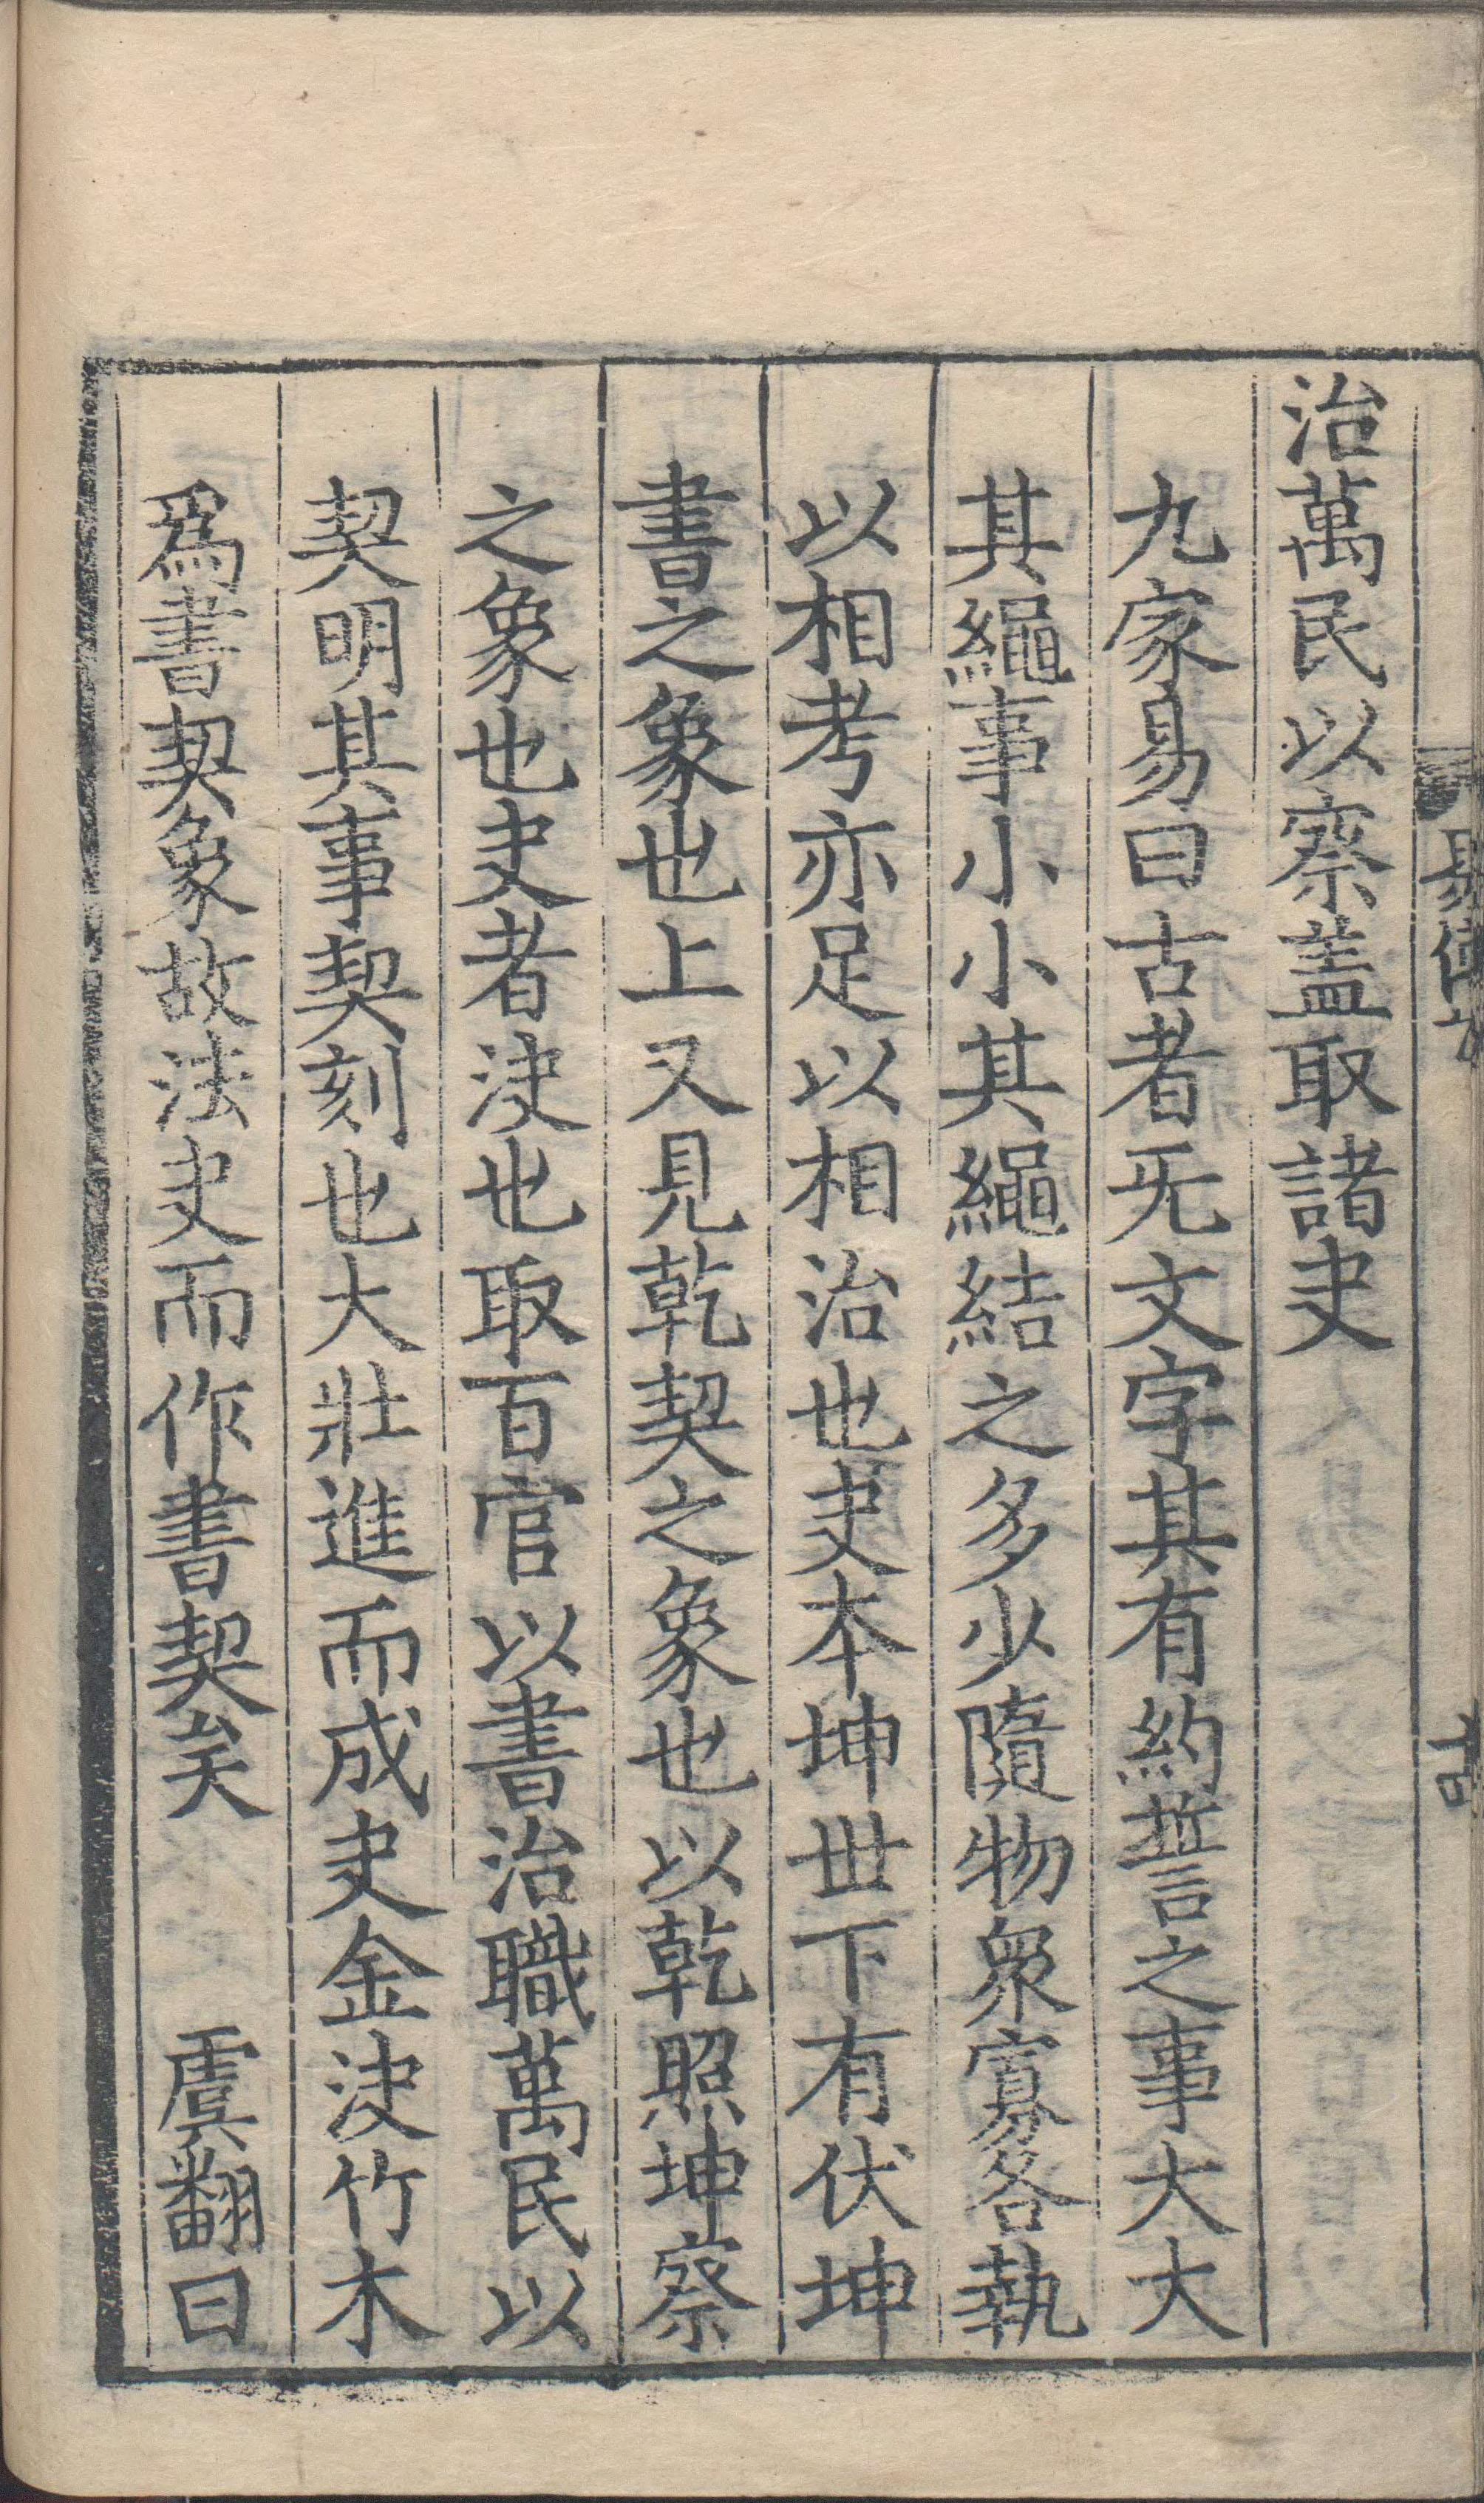 治萬民以察蓋取諸夬
九家易曰古者旡文字其有約誓之事大大
其繩事小小其繩結之多少隨物衆寡各執
以相考亦足以相治也夬本坤世下有伏坤
書之象也上又見乾契之象也以乾照坤察
之象也夬者決也取百官以書治職萬民以
契明其事契刻也大壯進而成夬金決竹木
爲書契象故法夬而作書契矣　虞翻曰